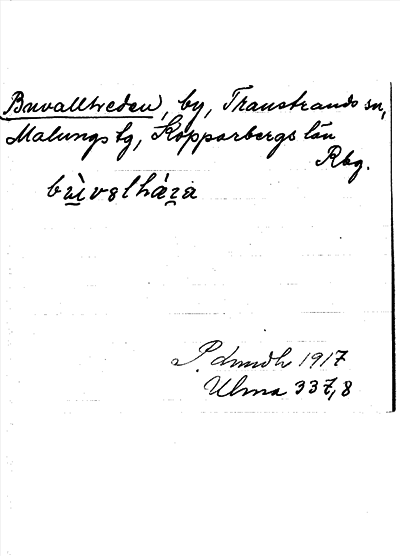 Buvallheden, by, Transtrands sn,
Malungs tg, Kopparbergs län
Rbg.
P. Lundh 1917
Ulma 337,8